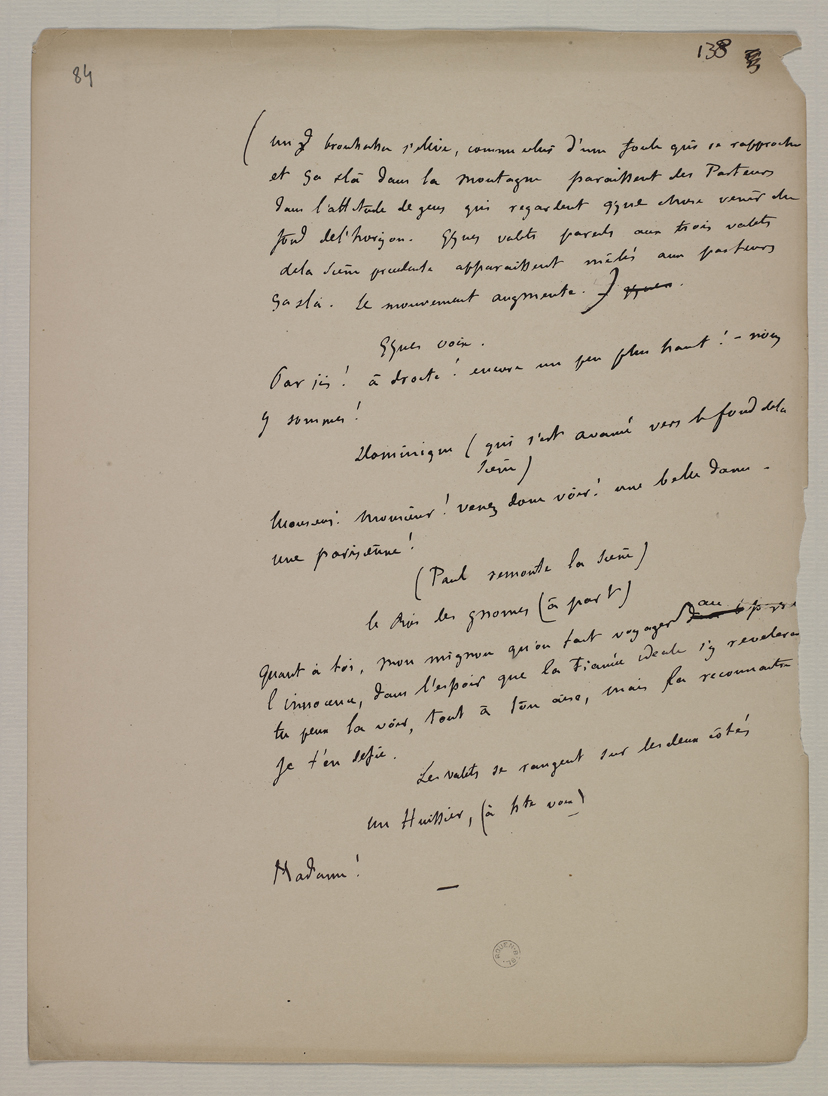 84
138
(un gd brouhaha s'élève, comme celui d'une foule qui se rapproche
et çà & là dans la montagne paraissent des Pasteurs
dans l'attitude de gens qui regardent qque chose venir du
fond de l'horizon. Qques valets pareils aux trois valets
de la scène précédente apparaissent mêlés aux pasteurs
çà & là. Le mouvement augmente.) qques.
Qques voix.
Par ici! à droite! encore un peu plus haut! - nous
y sommes!
Dominique (qui s'est avancé vers le fond de la
scène)
Monsieur! Monsieur! venez donc voir! une belle dame -
une parisienne!
(Paul remonte la scène)
le Roi des gnomes (à part)
Quant à toi, mon mignon qu'on fait voyager au
l'innocence, dans l'espoir que la Fiancée idéale s'y revelera
tu peux la voir, tout à ton aise, mais la reconnaitre
je t'en defie.
Les valets se rangent sur les deux côtés
Un Huissier, (à hte voix)
Madame!
ROUEN